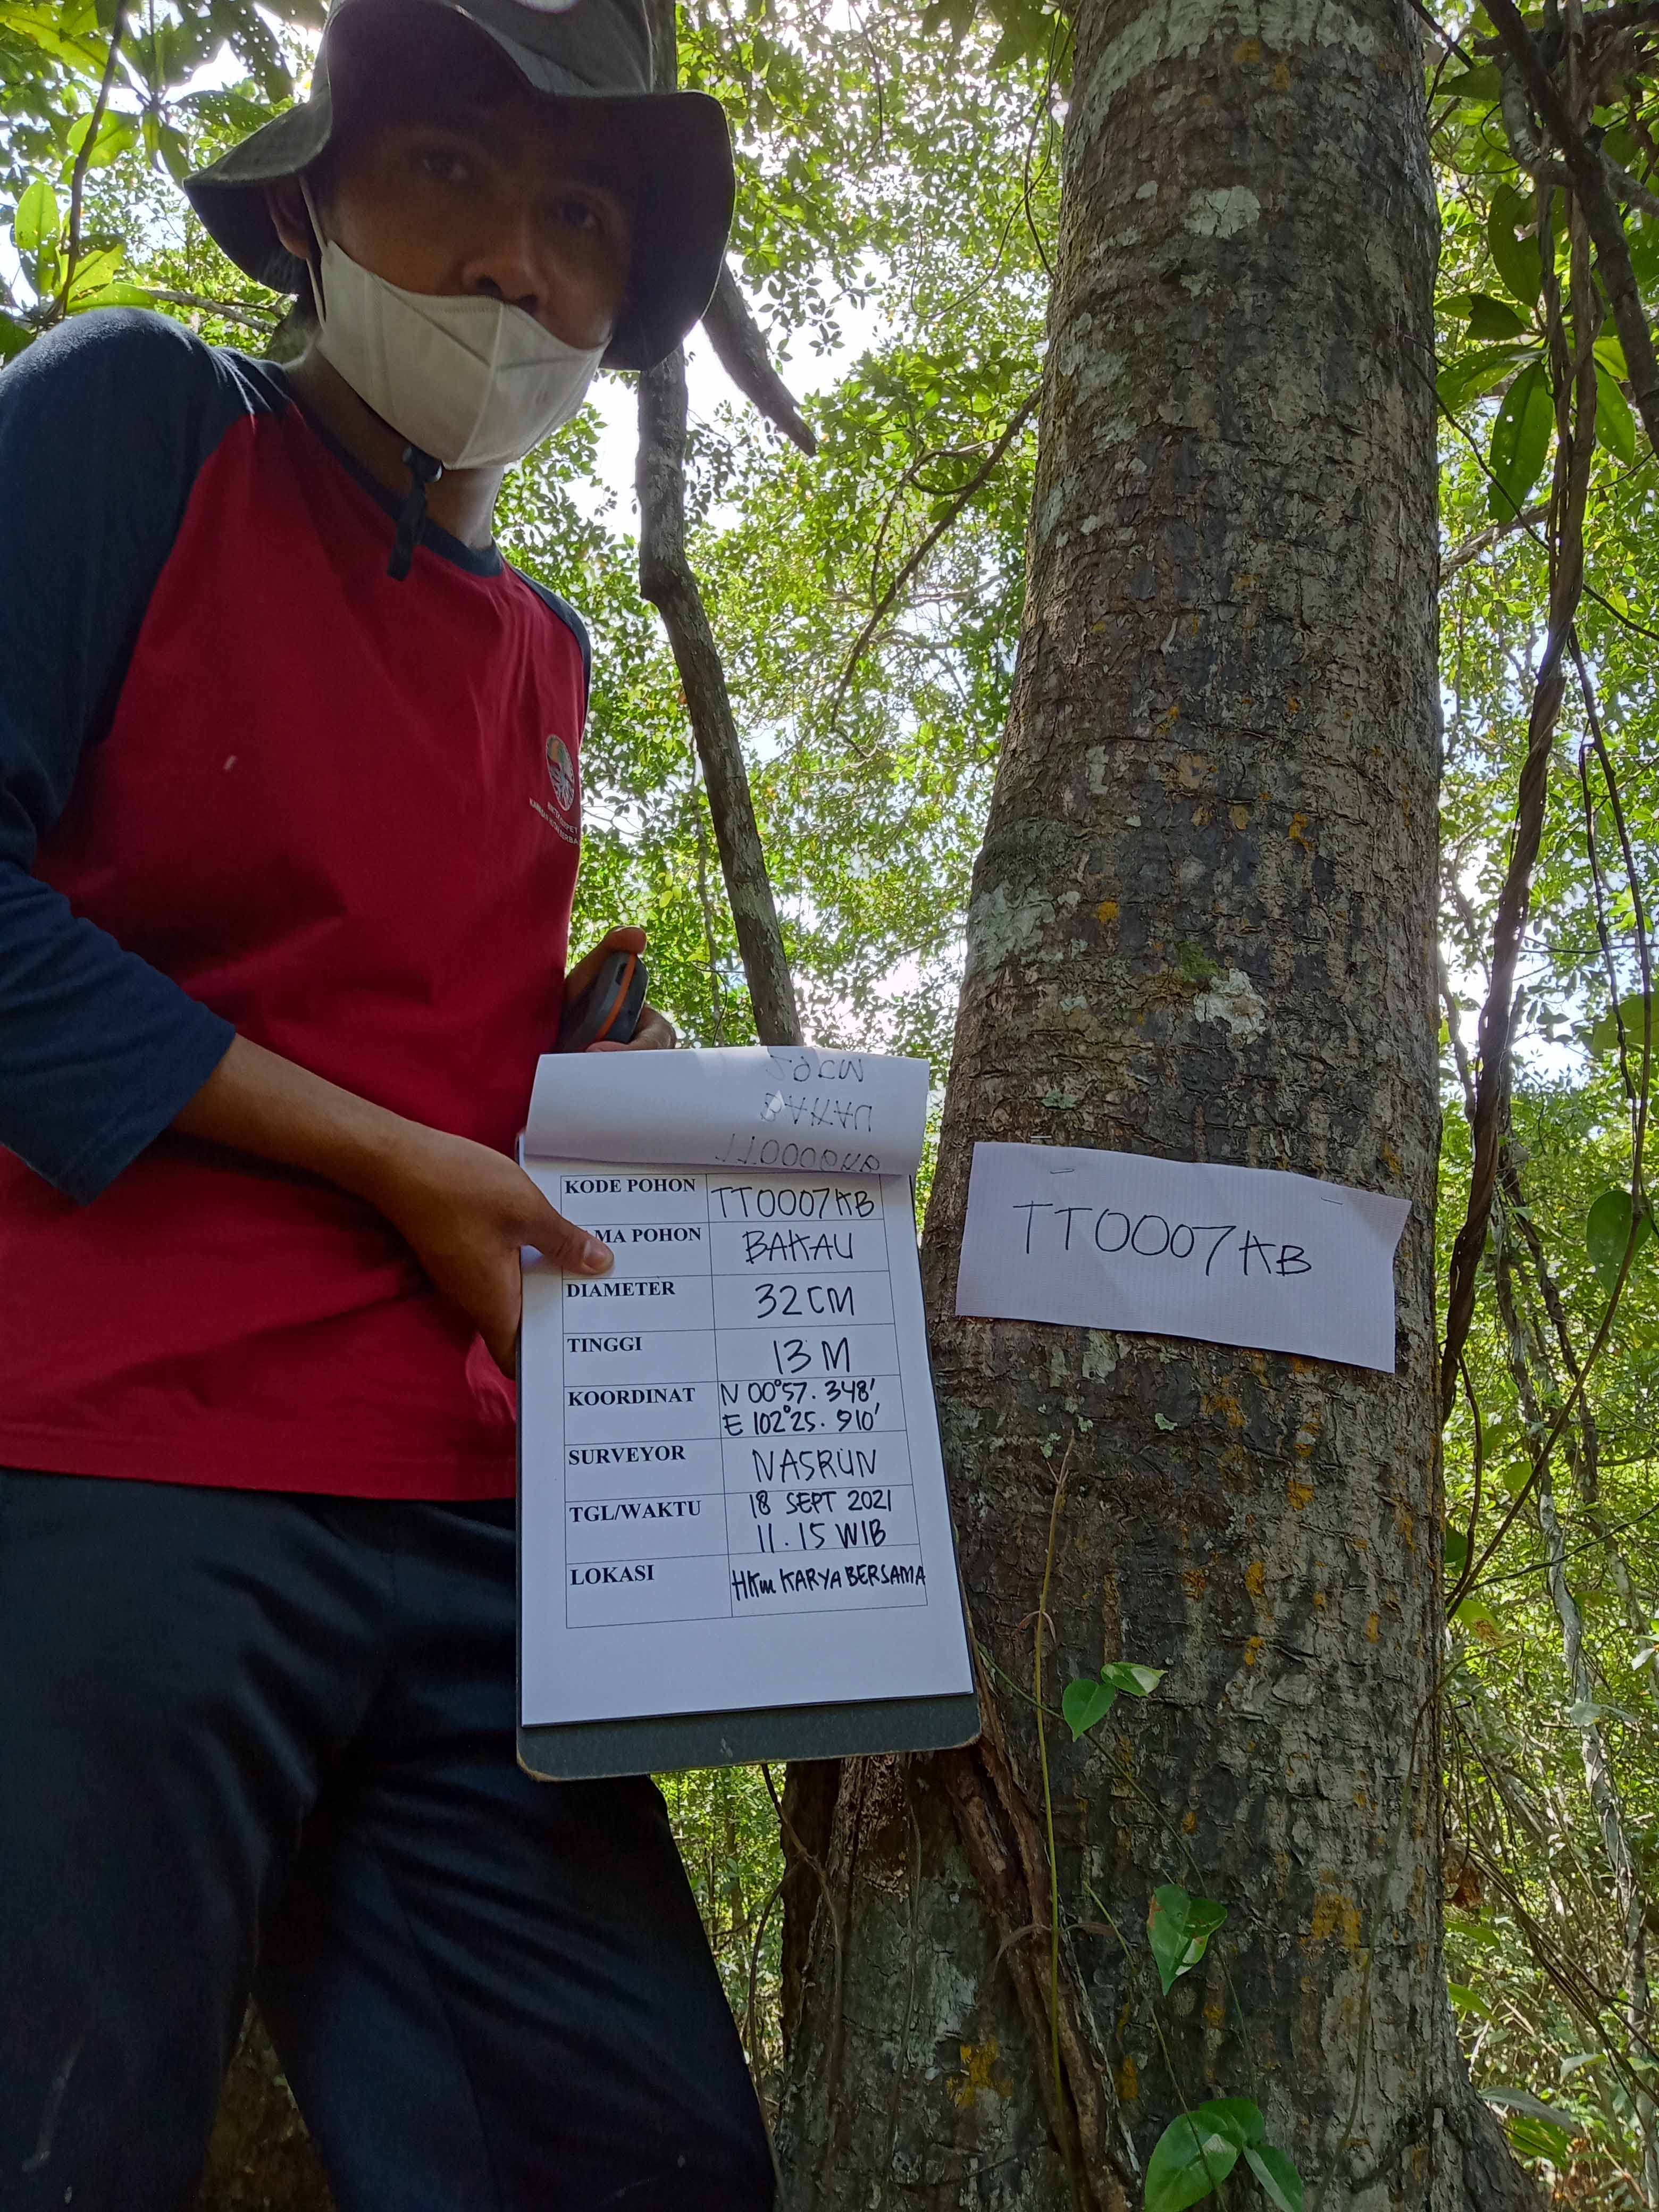 KODE POHON TT0007KB
MA POHON BAKAU
DIAMETER 32 CM
TINGGI 13 M
KOORDINAT N 00°57. 348'
E 102°25. 910'
SURVEYOR NASRUN
TGL/WAKTU 18 SEPT 2021
11.15 WIB
LOKASI HKm KARYA BERSAMA
TT0007KB